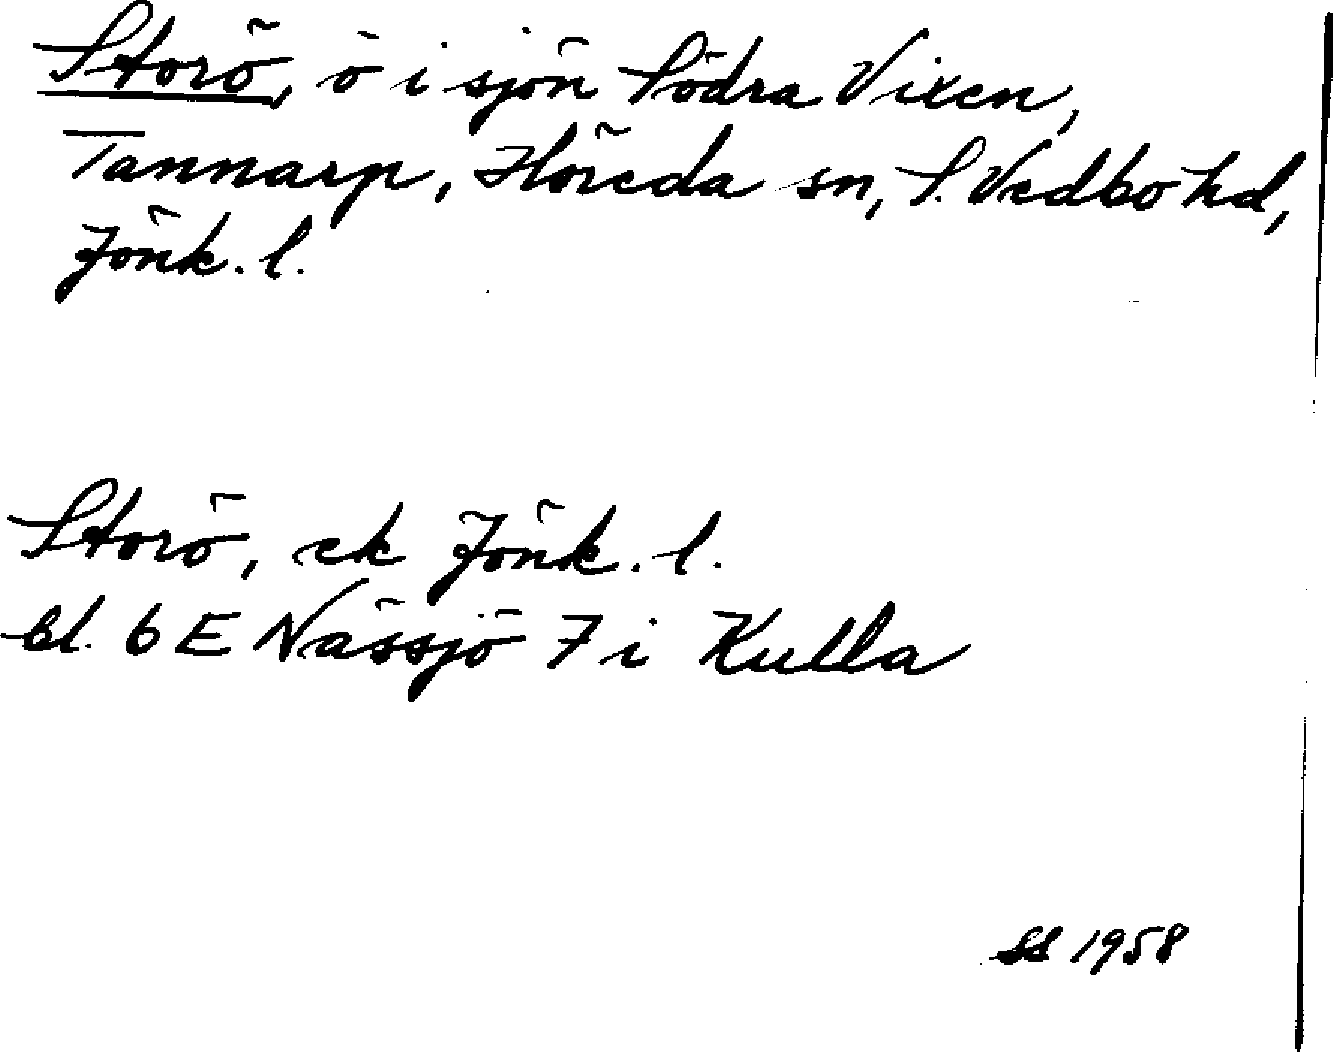 Storö, ö i sjön Södra Vixen,
Tannarp, Höreda sn, S. Vedbo hd,
Jönk. l.
Storö, ek Jönk. l.
bl. 6 E Nässjö 7 i Kulla
SS 1958